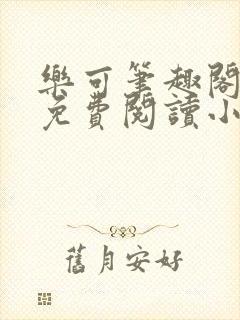 樂可筆趣閣
免費閱讀小
舊月安好